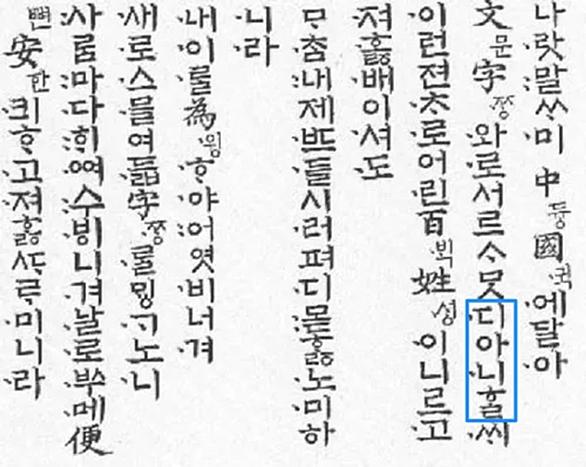 나랏말ᄊᆞ미 中듕國귁에달아
文문字ᄍᆞᆼ와로서르ᄉᆞᄆᆞᆺ디아니ᄒᆞᆯᄊᆡ
이런젼ᄎᆞ로어린百ᄇᆡᆨ姓셩이니르고
져ᄒᆞᇙ배이셔도
ᄆᆞᄎᆞᆷ내제ᄠᅳ들시러펴디몯ᄒᆞᇙ노미하
니라
내이ᄅᆞᆯ為윙ᄒᆞ야어엿비너겨
새로스믈여듧字ᄍᆞᆼᄅᆞᆯᄆᆡᇰᄀᆞ노니
사ᄅᆞᆷ마다ᄒᆡᅇᅧ수ᄫᅵ니겨날로ᄡᅮ메便
뼌安한킈ᄒᆞ고져ᄒᆞᇙᄯᆞᄅᆞ미니라